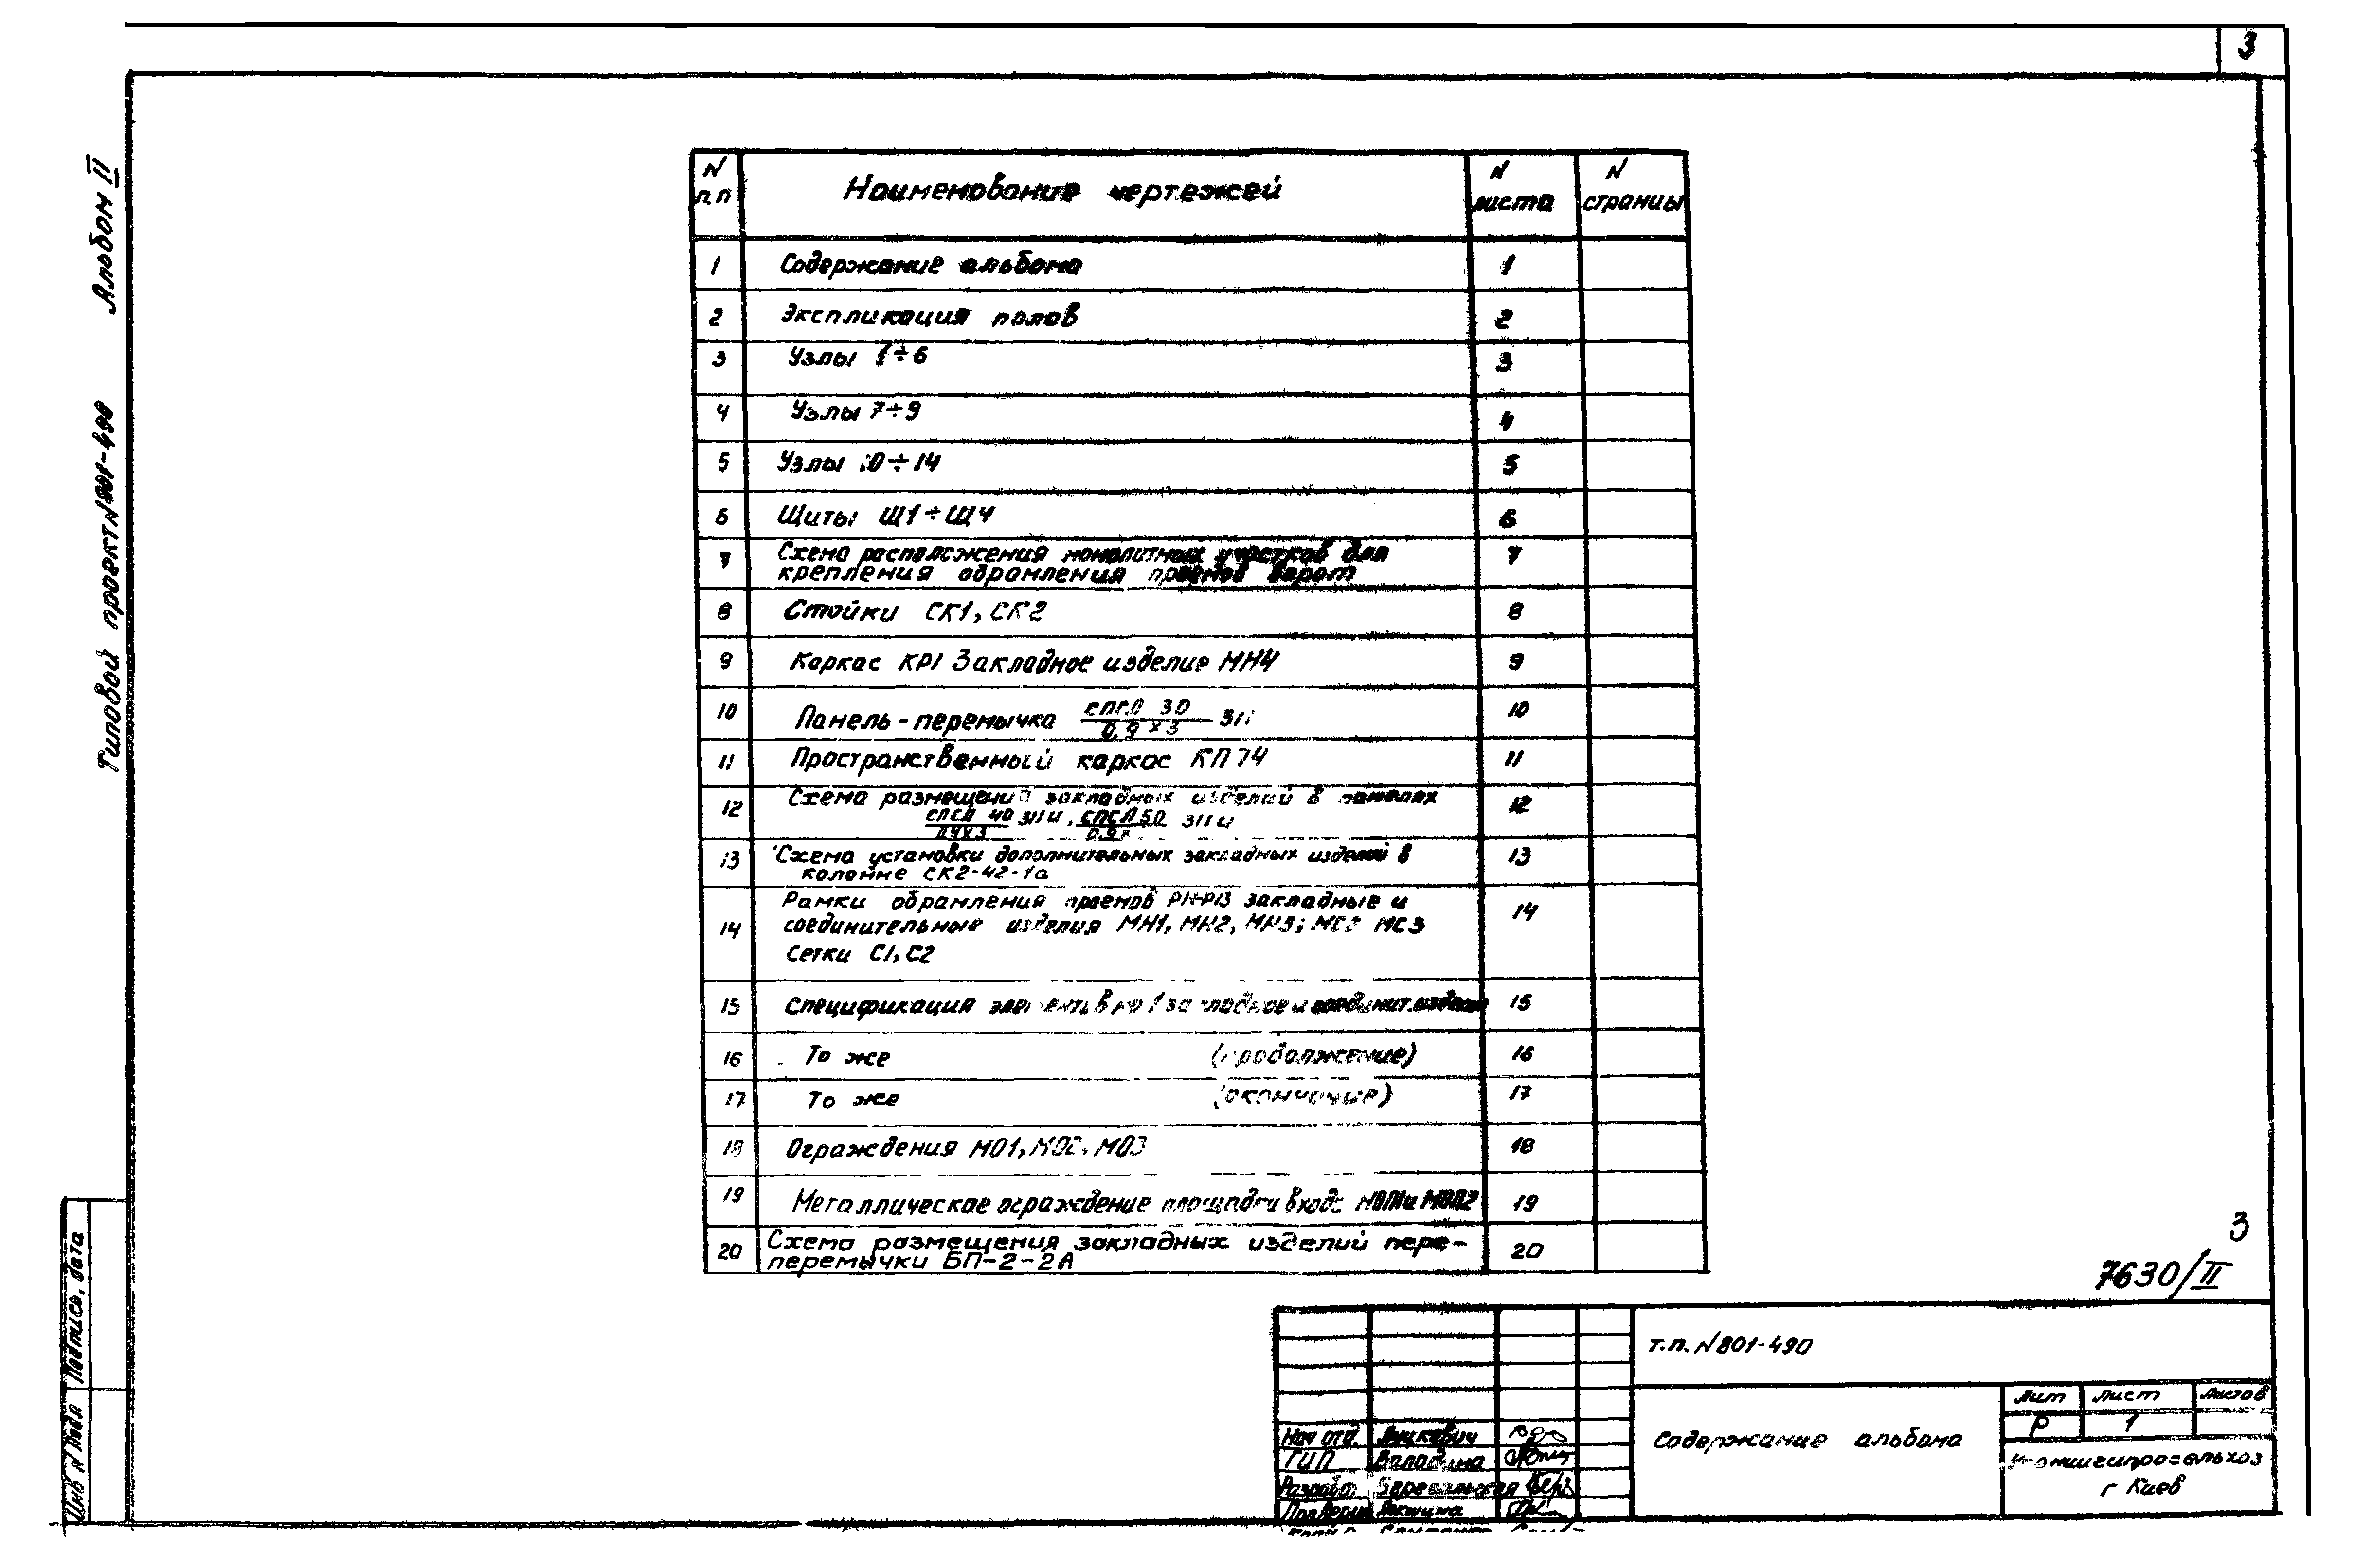 3
Альбом II
Типовой проект N 801-490
N п.п Наименование чертежей N листа N страницы
1 Содержание альбома 1
2 Экспликация полов 2
3 Узлы 1÷6 3
4 Узлы 7÷9 4
5 Узлы 10÷14 5
6 Щиты Щ1÷Щ4 6
7 Схема расположения монолитных участков для 7
крепления обрамления проемов ворот
8 Стойки СК1, СК2 8
9 Каркас КР1 Закладное изделие МН4 9
10 Панель-перемычка СПСЛ 30 / 0.9×3 10
11 Пространственный каркас КП74 11
12 Схема размещения закладных изделий в панелях 12
СПСЛ 40 311и, СПСЛ 50 311и
13 Схема установки дополнительных закладных изделий в 13
колонне СК2-42-1а
14 Рамки обрамления проемов закладные и 14
соединительные изделия МН1, МН2, МН3; МС2 МС3
Сетки С1, С2
15 Спецификация 15
16 То же (продолжение) 16
17 То же (окончание) 17
18 Ограждения МО1, МО2, МО3 18
19 Металлическое ограждение площадки входа МОП1 и МОП2 19
20 Схема размещения закладных изделий пере- 20
перемычки БП-2-2А
3
7630/II
т.п. N 801-490
Содержание альбома
Лит Лист Листов
Р 1
г Киев
Нач отд. Луцкевич
ГИП
Разработ
Проверил
Инв N подл Подпись, дата